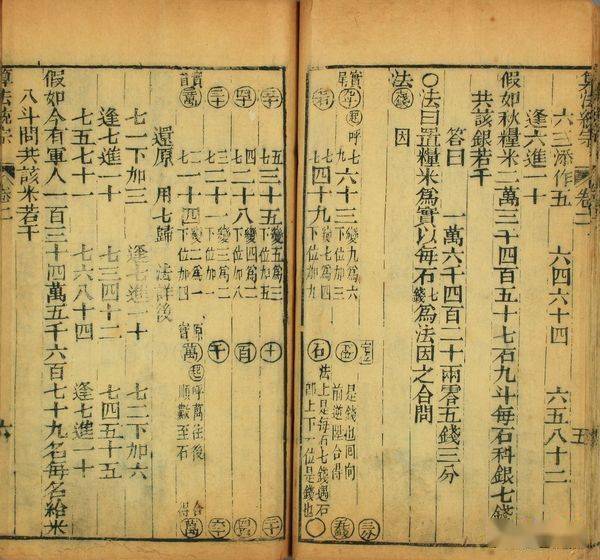 算法統宗
卷二
五
六三添作五 六四六十四 六五八十二
逢六進一十
假如秋糧米二萬三千四百五十七石九斗每石科銀七錢
共該銀若干
答曰 一萬六千四百二十兩零五錢三分
○法曰置糧米為實以每石七錢為法因之合問
法 七錢 因
七九六十三 變九為六 下位加三
七七四十九 變七為四 下位加九
石 法上是每石七錢遇石
即上下一位是錢也
是錢也回向
前逆陞合得
五七三十五 變五為三 下位加五
四七二十八 變四為二 下位加八
三七二十一 變三為二 下位加一
二七一十四 變二為一 下位加四
十 百 千 萬
呼萬往後
順數至石
還原 用七歸 法詳後
七一下加三 逢七進一十 七二下加六
逢七進一十 七三四十二 七四五十五
七五七十一 七六八十四 逢七進一十
假如今有軍人一百三十四萬五千六百七十九名每名給米
八斗問共該米若干
算法統宗
卷二
六